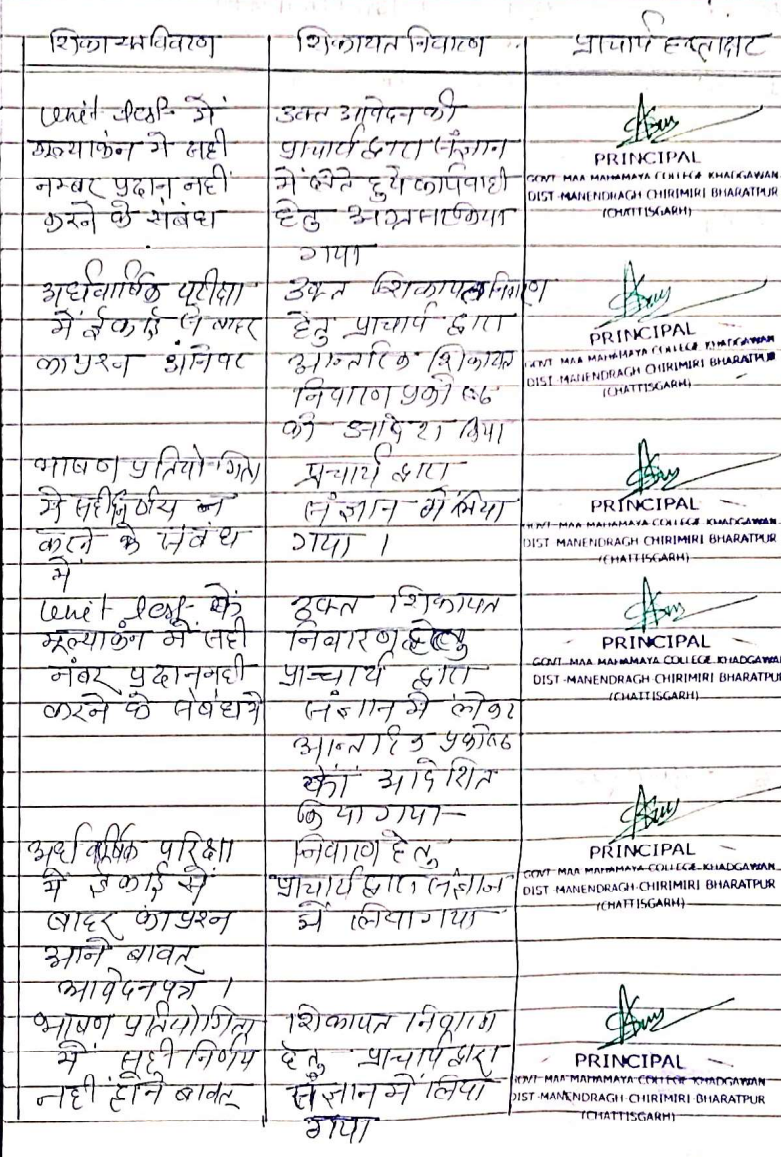 शिकायत विवरण
शिकायत निवारण
प्राचार्य हस्ताक्षर
unit test में
मूल्याकंन में सही
नम्बर प्रदान नहीं
करने के संबंध
उक्त आवेदन को
प्राचार्य द्वारा संज्ञान
में लेते हुये कार्यवाही
हेतु किया
गया
PRINCIPAL
GOVT MAA MAHAMAYA COLLEGE KHADGAWAN
DIST-MANENDRAGH CHIRIMIRI BHARATPUR
(CHATTISGARH)
अर्धवार्षिक परीक्षा
में ईकाई से बाहर
का प्रश्न
उक्त शिकायत निवारण
हेतु प्राचार्य द्वारा
आन्तरिक शिकायत
निवारण प्रकोष्ठ
को आदेश दिया
PRINCIPAL
GOVT MAA MAHAMAYA COLLEGE KHADGAWAN
DIST-MANENDRAGH CHIRIMIRI BHARATPUR
(CHATTISGARH)
भाषण प्रतियोगिता
में सही निर्णय न
करने के संबंध
में
प्रचार्य द्वारा
संज्ञान में लिया
गया ।
PRINCIPAL
GOVT MAA MAHAMAYA COLLEGE KHADGAWAN
DIST MANENDRAGH CHIRIMIRI BHARATPUR
(CHATTISGARH)
unit test के
मूल्याकंन में सही
नंबर प्रदान नही
करने के संबंध में
उक्त शिकायत
निवारण हेतु
प्राच्चार्य द्वारा
संज्ञान में लेकर
आन्तरिक प्रकोष्ठ
को आदेशित
किया गया-
PRINCIPAL
GOVT MAA MAHAMAYA COLLEGE KHADGAWAN
DIST-MANENDRAGH CHIRIMIRI BHARATPUR
(CHATTISGARH)
अर्धवार्षिक परिक्षा
में ईकाई से
बाहर का प्रश्न
आने बावत्
आवेदन पत्र ।
निवारण हेतु
प्राचार्य द्वारा संज्ञान
में लिया गया
PRINCIPAL
GOVT MAA MAHAMAYA COLLEGE KHADGAWAN
DIST-MANENDRAGH-CHIRIMIRI BHARATPUR
(CHATTISGARH)
भाषण प्रतियोगिता
में सही निर्णय
नही होने बावत्
शिकायत निवारण
हेतु प्राचार्य द्वारा
संज्ञान में लिया
गया
PRINCIPAL
GOVT MAA MAHAMAYA COLLEGE KHADGAWAN
DIST-MANENDRAGH CHIRIMIRI BHARATPUR
(CHATTISGARH)